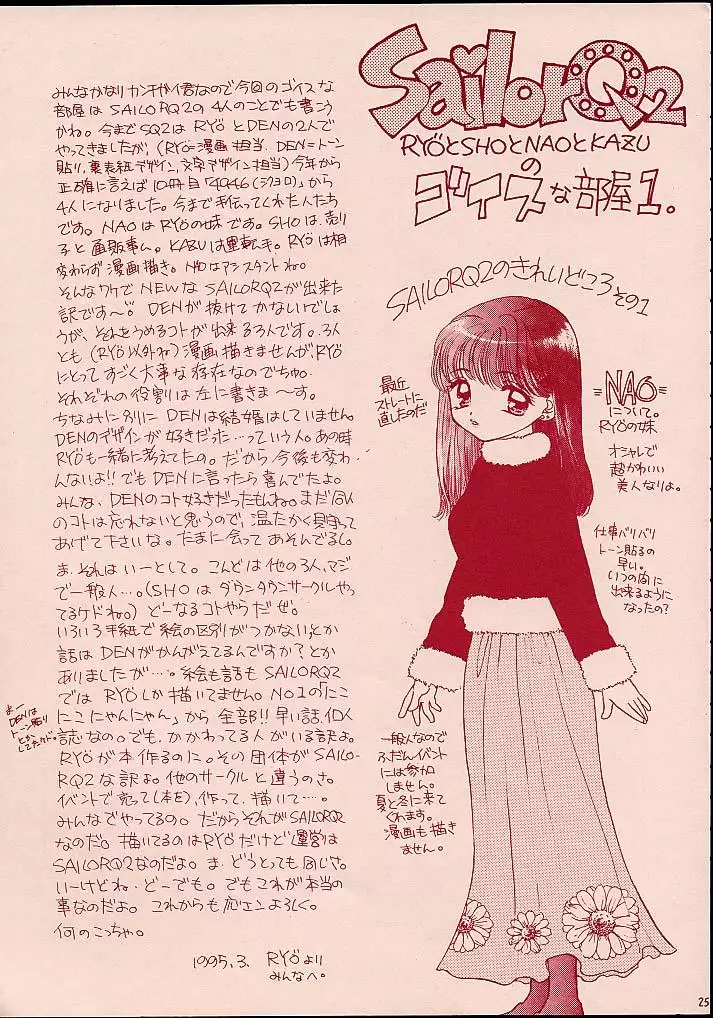 SailorQ2
RYÖとSHOとNAOとKAZU
の
ゴイスな部屋1。
みんなかなりカンチガイ君なので今回のゴイスな
部屋はSAILORQ2の4人のことでも書こう
かね。今までSQ2はRYÖとDENの2人で
やってきましたが、(RYÖ=漫画担当、DEN=トーン
貼り、裏表紙デザイン、文字デザイン担当)今年から
正確に言えば10冊目「4946(ジクヨロ)」から
4人になりました。今まで手伝ってくれた人たち
です。NAOはRYÖの妹です。SHOは、売り
子と通販事ム。KAZUは運転手。RYÖは相
変わらず漫画描き。NAOはアシスタントね。
そんなワケでNEWなSAILORQ2が出来た
訳です〜。DENが抜けてかないいでしょ
うが、それをうめるコトが出来る3人です。3人
とも(RYÖ以外ね)漫画描きませんがRYÖ
にとってすごく大事な存在なのでちゅ。
それぞれの役割は左に書きま〜す。
ちなみに別にDENは結婚はしていません。
DENのデザインが好きだった…っていう人。あの時
RYÖも一緒に考えてたの。だから今後も変わ
んないよ!!でもDENに言ったら喜んでたよ。
みんな、DENのコト好きだったもんね。まだDEN
のコトは忘れないと思うので、温たかく見守って
あげて下さいな。たまに会ってあそんでるし。
ま、それはいーとして。こんどは他の3人、マジ
で一般人…。(SHOはダウンタウンサークルやっ
てるケドね。)どーなるコトやらだぜ。
いろいろ手紙で絵の区別がつかない、とか
話はDENがかんがえてるんですか?とか
ありましたが…。絵も話もSAILORQ2
ではRYÖしか描いてません。NO1の「にこ
にこにゃんにゃん」から全部!!早い話、個人
誌なの。でも、かかわってる人がいる訳よ。
RYÖが本作るのに。その団体がSAILO-
RQ2な訳よ。他のサークルと違うのさ。
イベントで売って(本を)、作って、描いて…。
みんなでやってるの。だからそれがSAILORQ2
なのだ。描いてるのはRYÖだけど運営は
SAILORQ2なのだよ。ま、どうとっても同じさ。
いーけどね、どーでも。でもこれが本当の
事なのだよ。これからも応エンよろしく。
何のこっちゃ。
1995.3. RYÖより
みんなへ。
まー
DENは
トーン貼り
とか
してたケド。
SAILORQ2のきれいどころその1
最近
ストレートに
直したのだ
=NAO=
について。
RYÖの妹
オシャレで
超かわいい
美人なりよ。
仕事バリバリ
トーン貼るの
早い。
いつの間に
出来るように
なったの?
一般人なので
ふだんイベント
には参加
しません。
夏と冬に来て
くれます。
漫画も描き
ません。
25